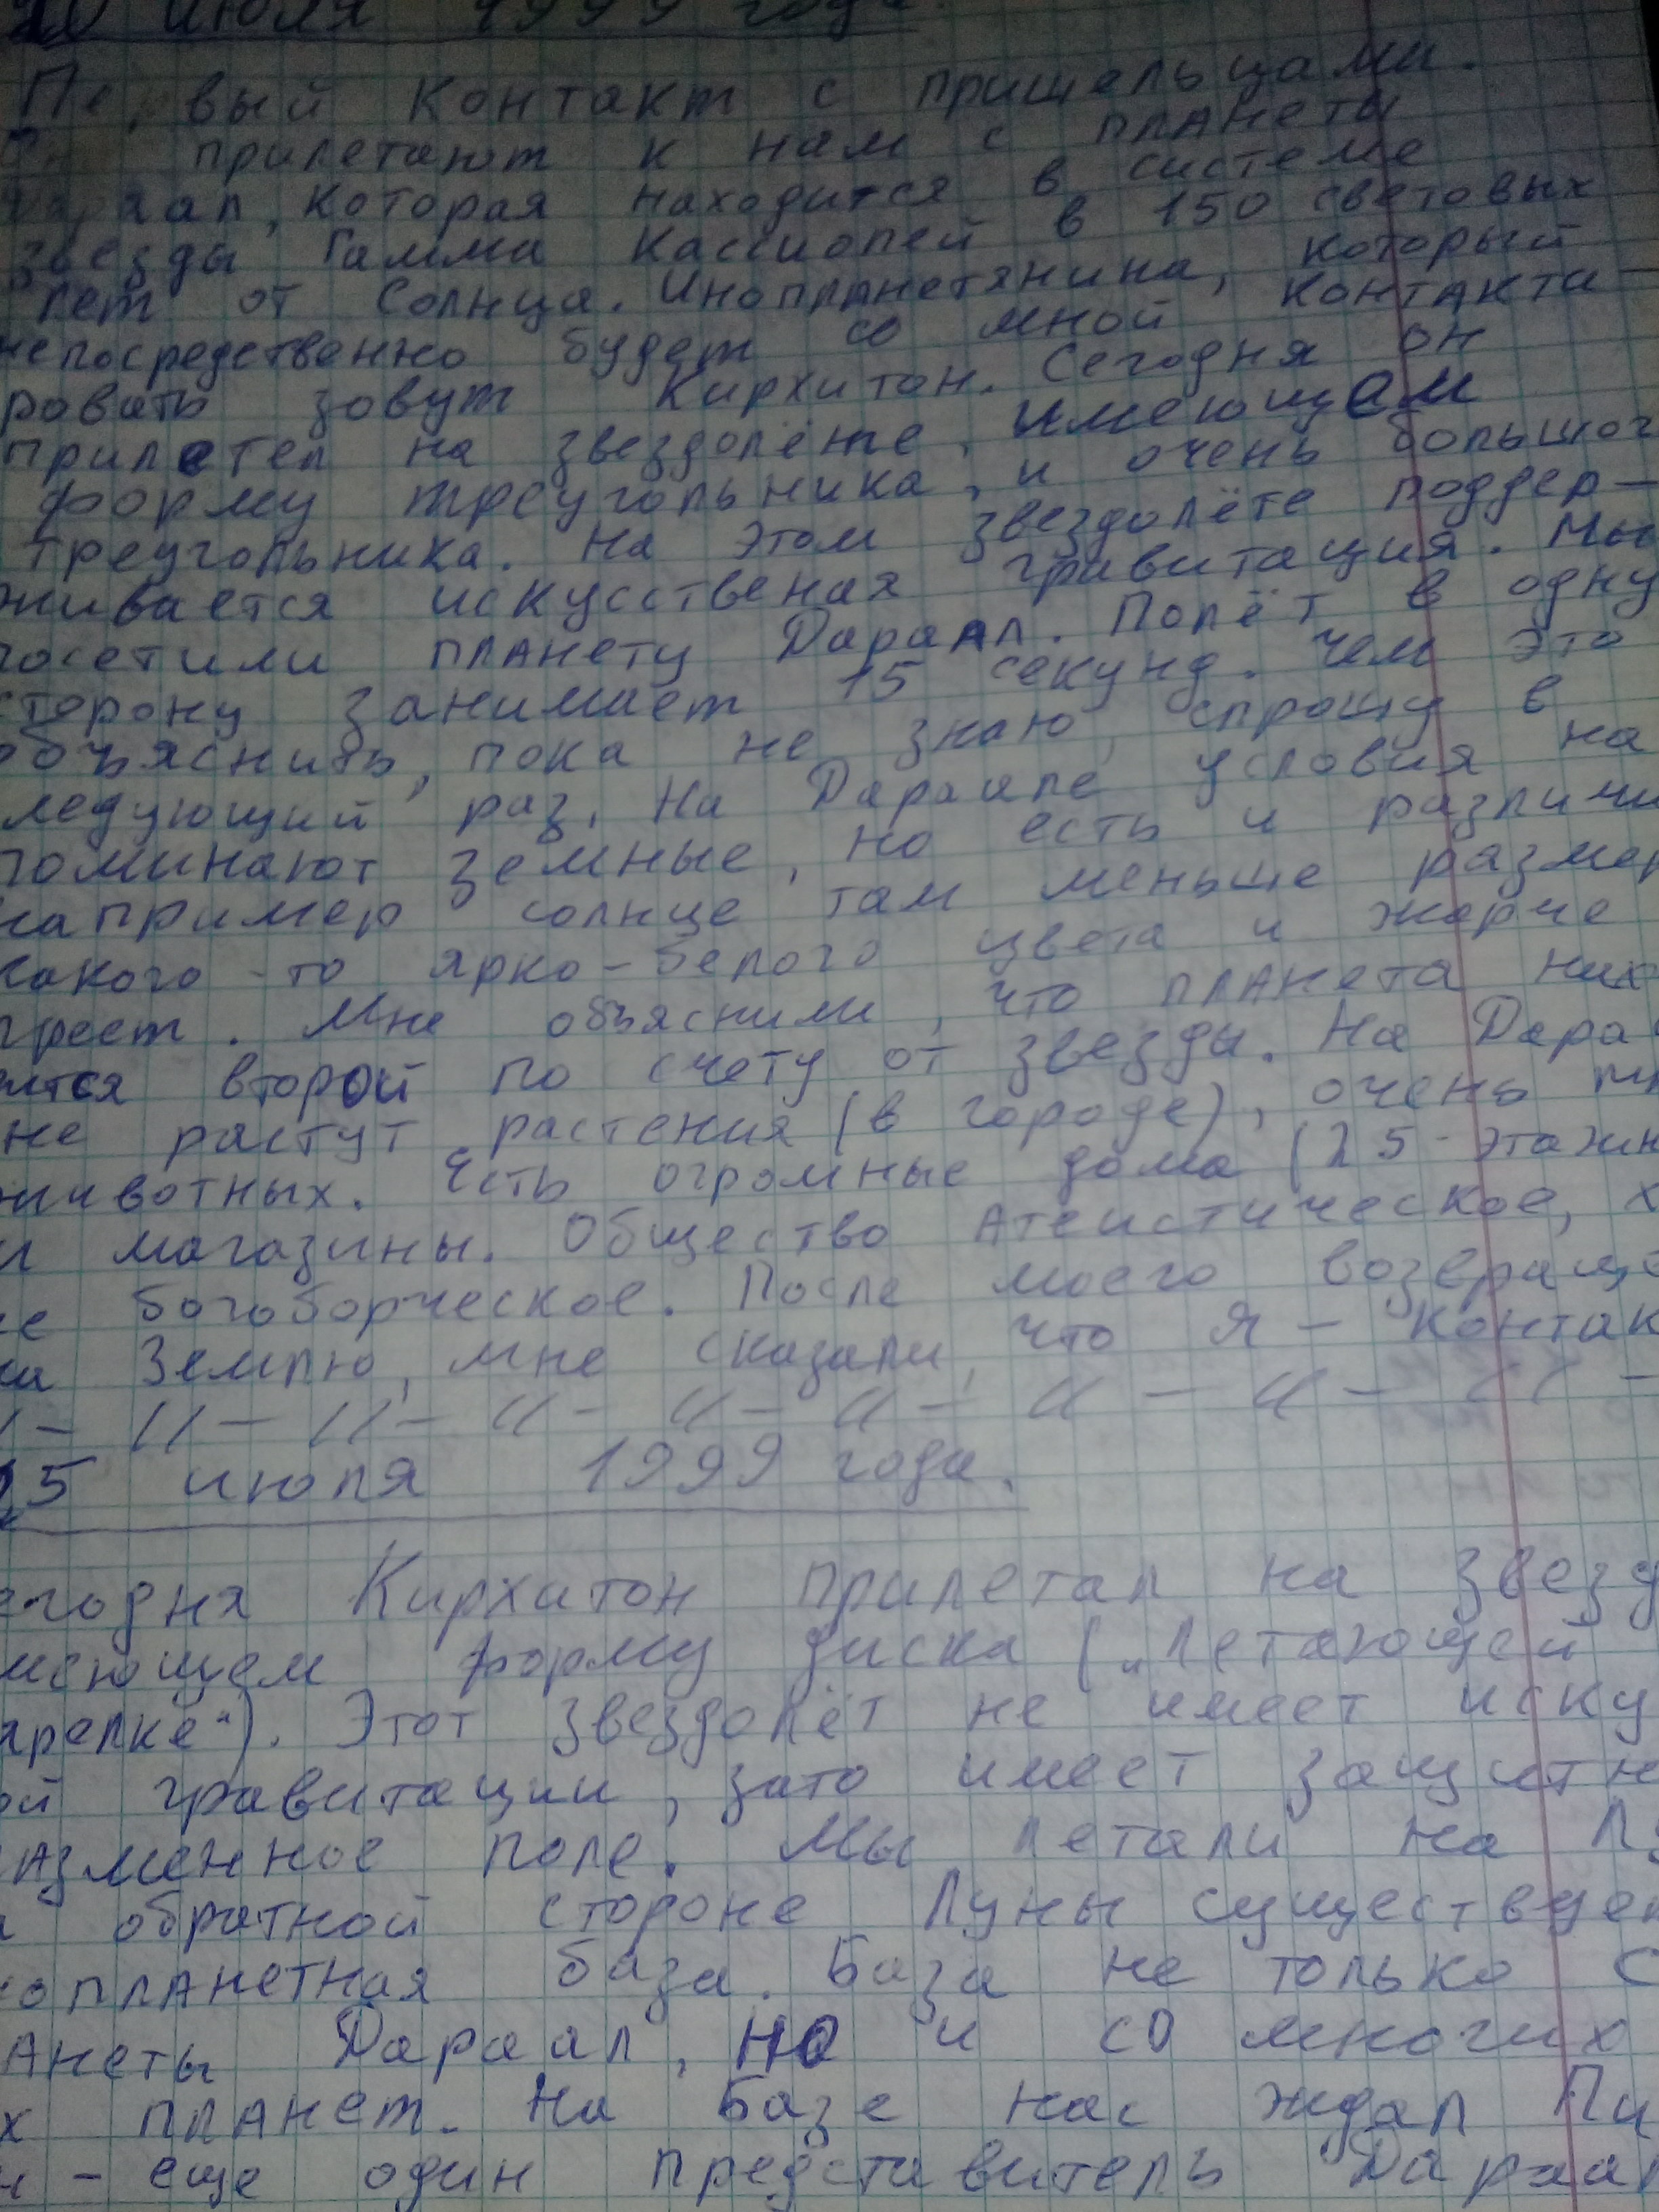 20 июля 1999 года.
Первый контакт с пришельцами.
прилетают к нам с планеты
которая находится в системе
звезды Гамма Кассиопей в 150 световых
лет от Солнца. Инопланетянина, который
непосредственно будет со мной контакти-
ровать зовут Кирхитон. Сегодня он
прилетел на звездолёте, имеющем
форму треугольника, и очень большог
треугольника. На этом звездолёте поддер-
живается искусственая гравитация. Мы
посетили планету Дараал. Полёт в одну
сторону занимает 15 секунд. Чем это
объяснить, пока не знаю, спрошу в
ледующий раз. На Дараале условия на
поминают земные, но есть и различи
например солнце там меньше размер
какого-то ярко-белого цвета и жарче
греет. Мне объяснили, что планета нах
ится второй по счету от звезды. На Дара
не растут растения (в городе), очень
животных. Есть огромные дома (25-этажн
и магазины. Общество атеистическое, х
е богоборческое. После моего возвраще
на Землю, мне сказали, что я - контак
— 〃 — 〃 — 〃 — 〃 — 〃 — 〃 — 〃 — 〃 —
25 июля 1999 года.
егодня Кирхитон прилетал на звезд
меющем форму диска („летающей
арелке“). Этот звездолёт не имеет иску
ой гравитации, зато имеет защитн
азменное поле. Мы летали на Лу
а обратной стороне Луны существует
опланетная база. База не только с
анеты Дараал, но и со многих
х планет. На базе нас ждал Пи
н - еще один представитель Дараал